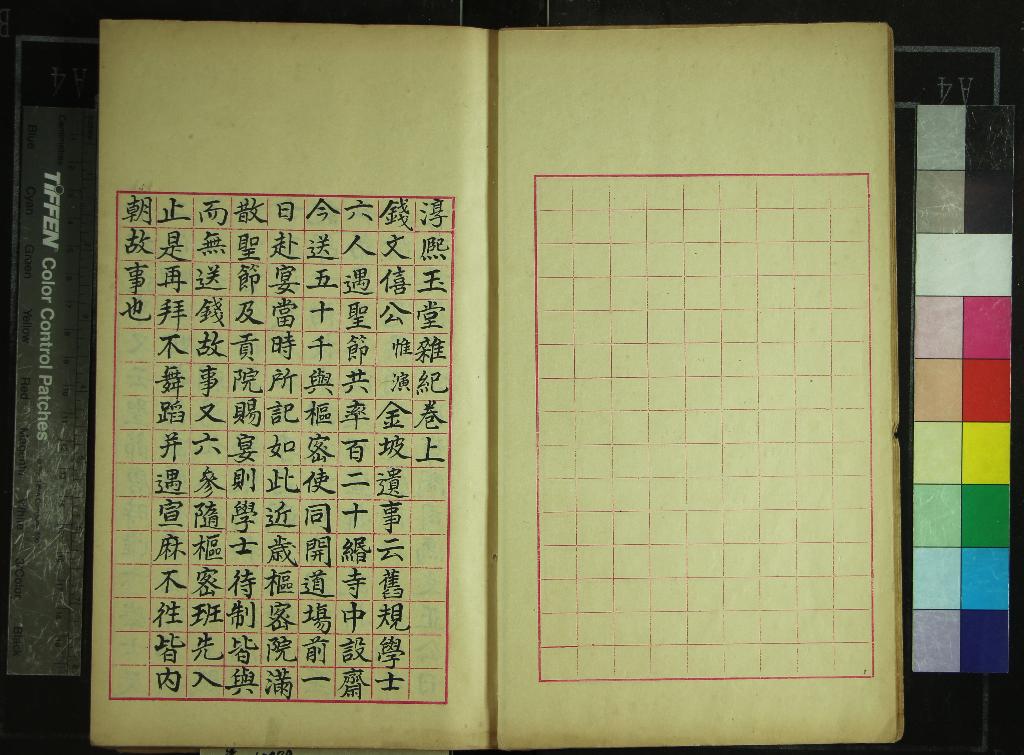 淳熙玉堂雜紀卷上
錢文僖公惟演金坡遺事云舊規學士
六人遇聖節共率百二十緡寺中設齋
今送五十千與樞密使同開道場前一
日赴宴當時所記如此近歲樞密院滿
散聖節及貢院賜宴則學士待制皆與
而無送錢故事又六參隨樞密班先入
止是再拜不舞蹈并遇宣麻不徃皆內
朝故事也
A4
A4
TIFFEN Color Control Patches
Blue
Cyan
Green
Yellow
Red
Magenta
White
3/Color
Black
Centimetres